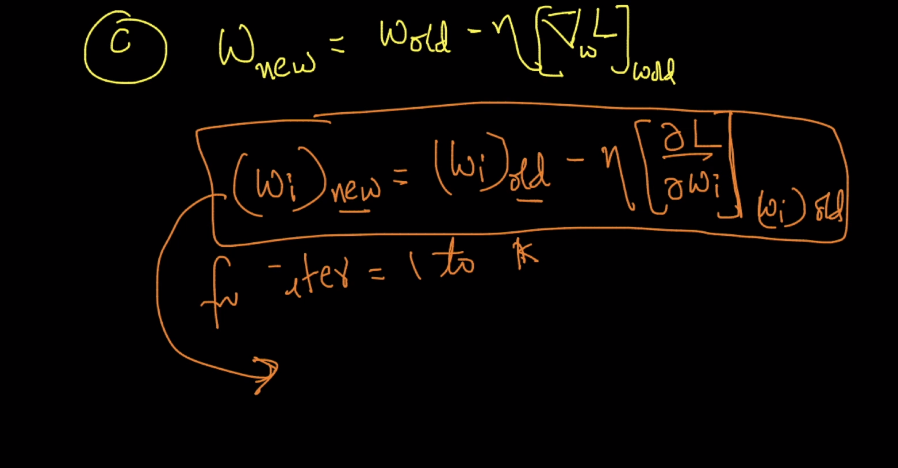 C W_new = W_old - η[∇_w L]_w_old
(w_i)_new = (w_i)_old - η[∂L/∂w_i](w_i)_old
for iter = 1 to K